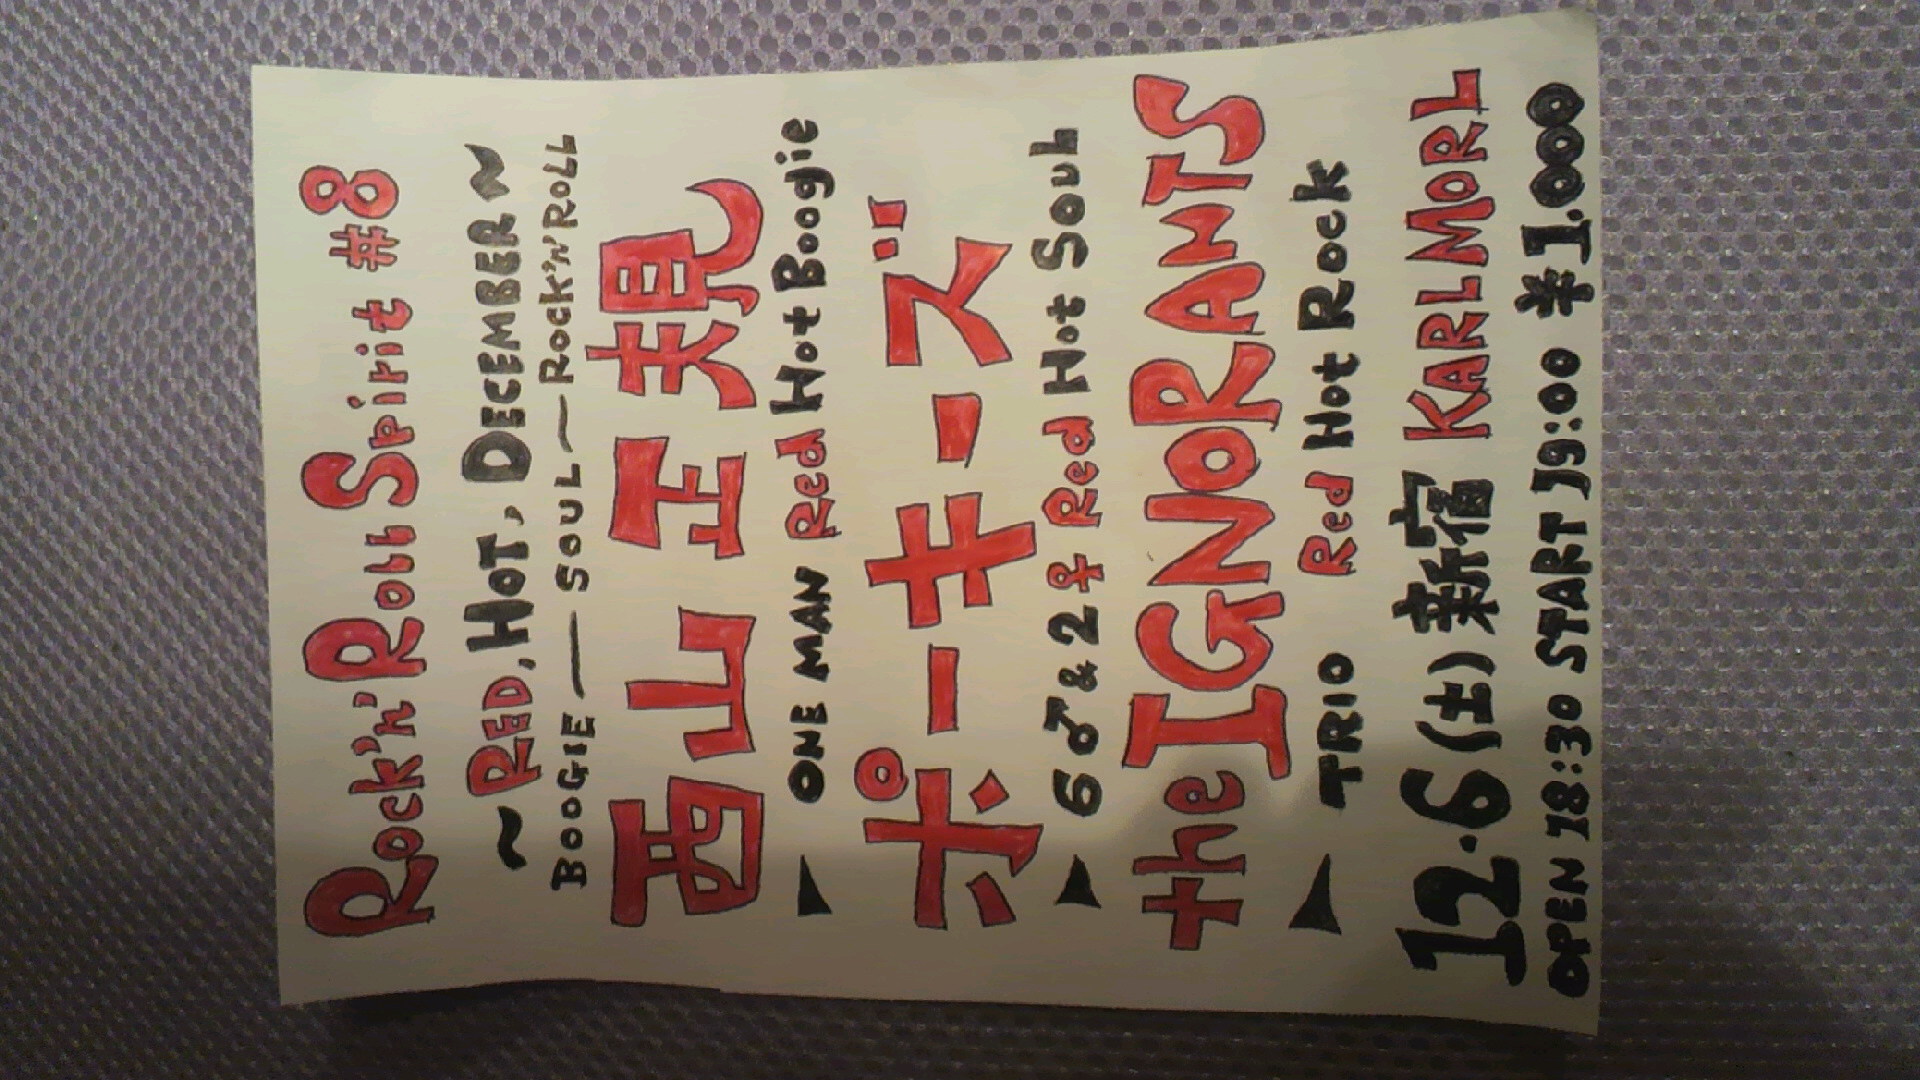 Rock'n'Roll Spirit #8
～RED, HOT, DECEMBER～
BOOGIE — SOUL — ROCK'N'ROLL
西山正規
▲ ONE MAN Red Hot Boogie
ポーキーズ
▲ 6♂&2♀ Red Hot Soul
the IGNORANTS
▲ TRIO Red Hot Rock
12.6(土)新宿 KARLMORL
OPEN 18:30 START 19:00 ¥1.000